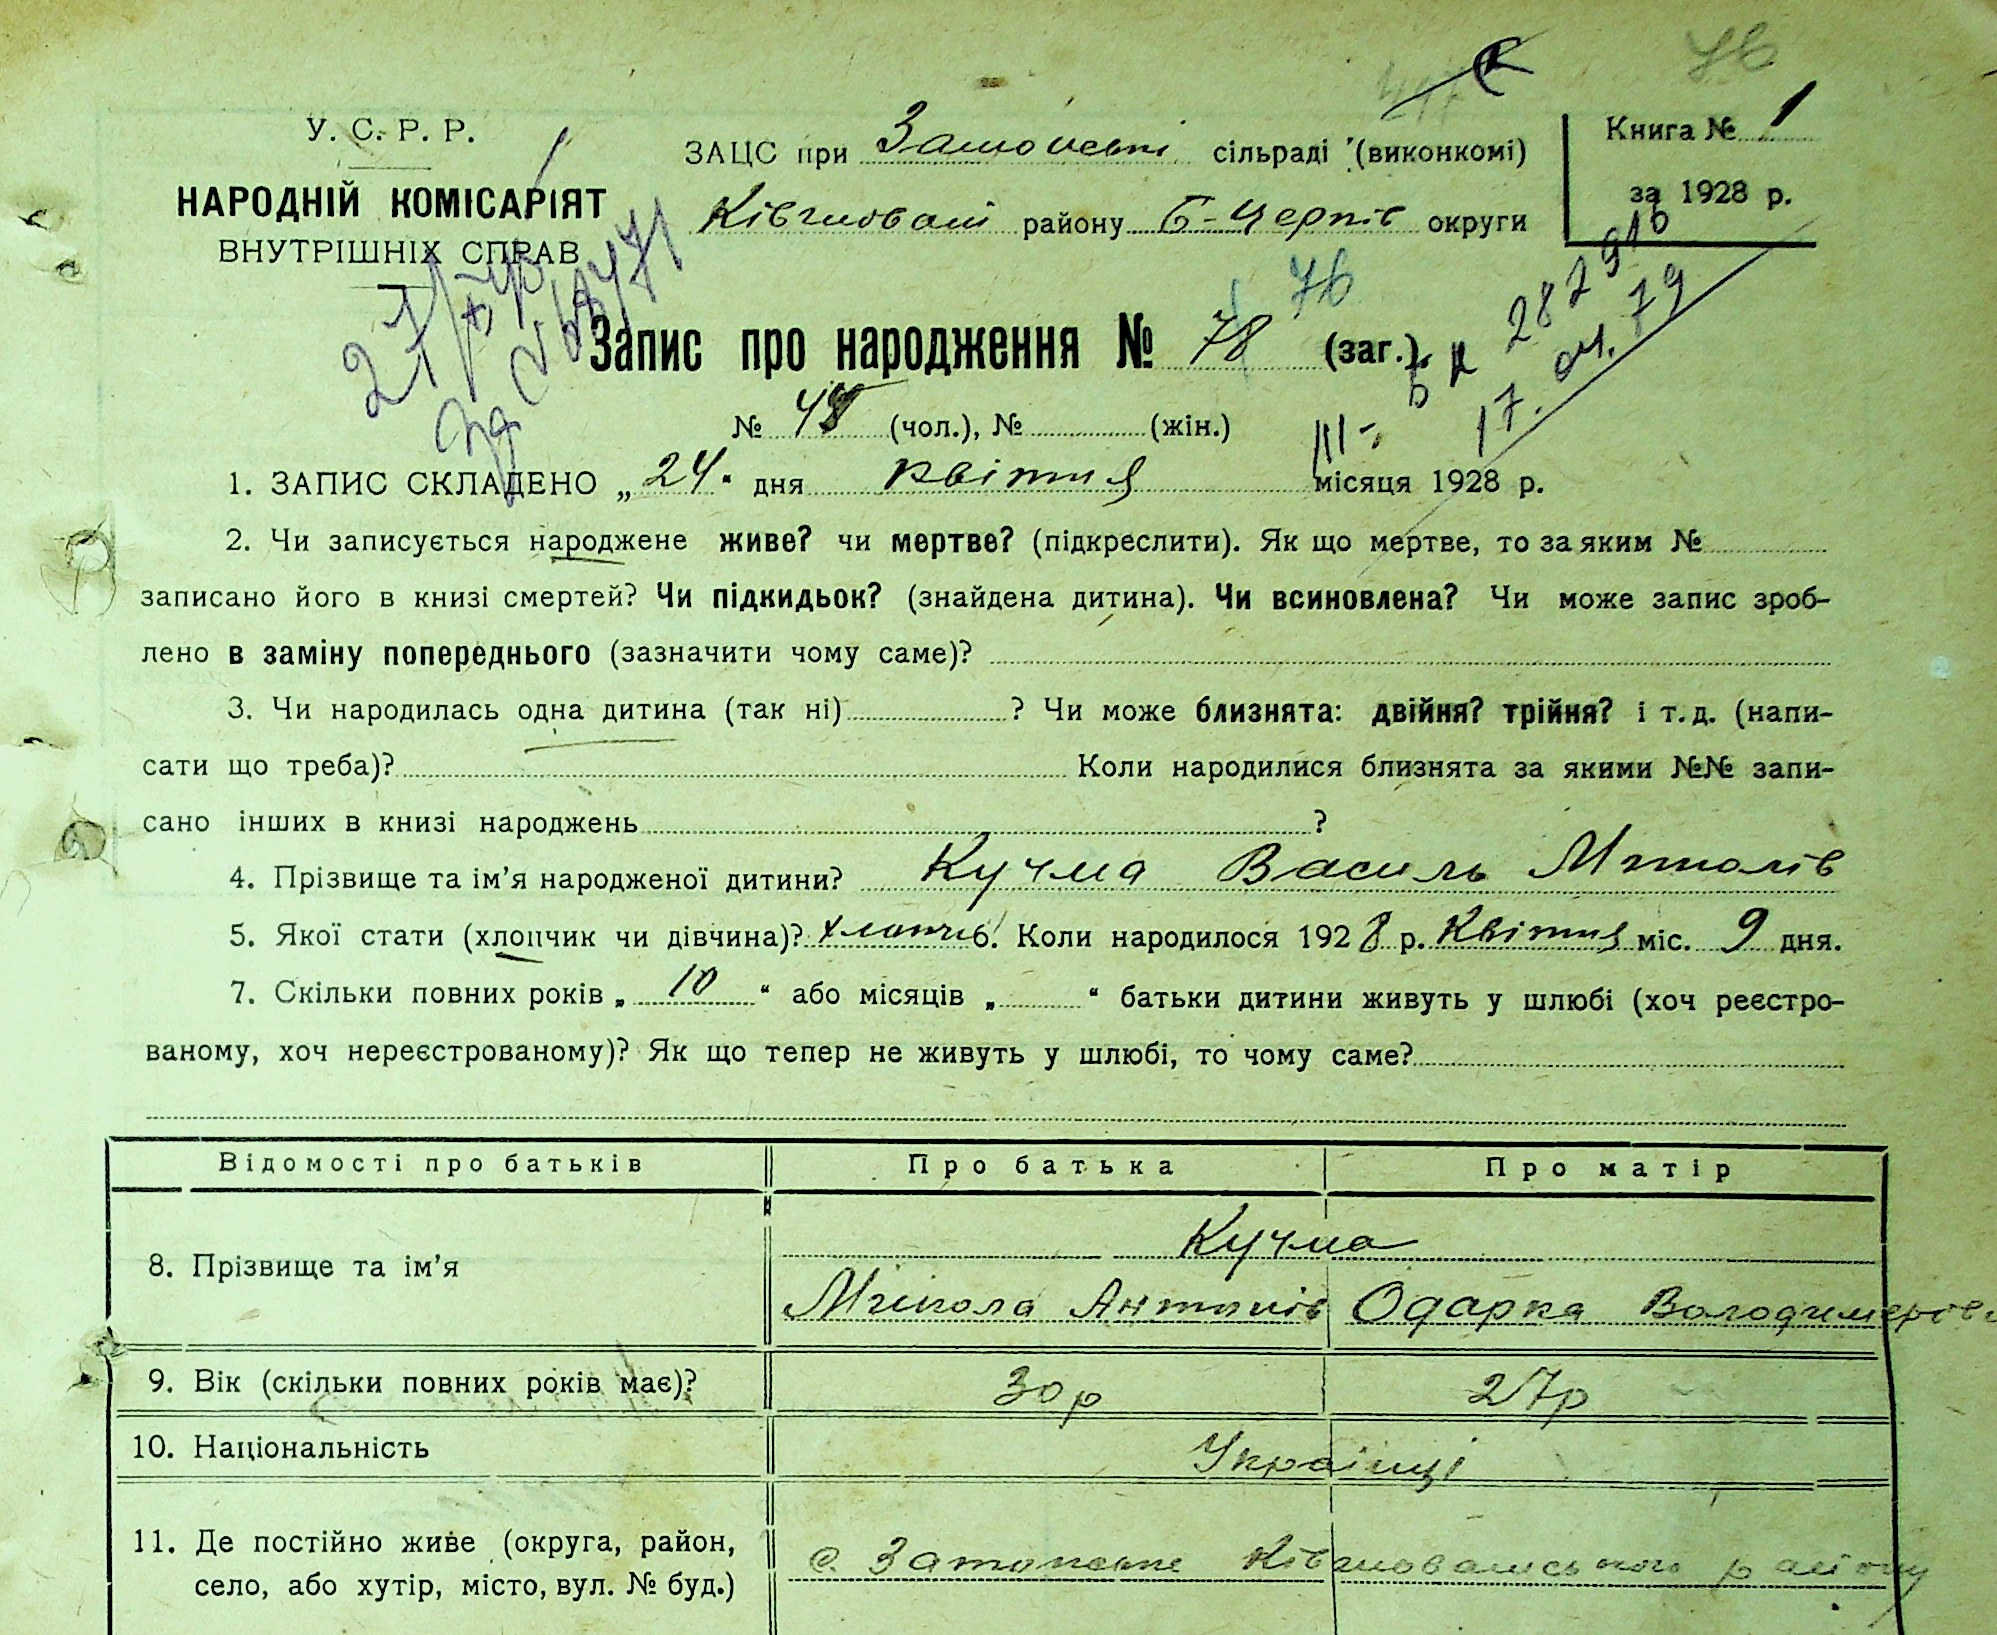 76
У. С. Р. Р.
НАРОДНІЙ КОМІСАРІЯТ
ВНУТРІШНІХ СПРАВ
ЗАЦС при сільраді (виконкомі)
району Б-Церків округи
Книга № 1
за 1928 р.
76
Запис про народження № 78 (заг.)
17. 04. 79
№ 48 (чол.), № (жін.)
1. ЗАПИС СКЛАДЕНО „24" дня квітня місяця 1928 р.
2. Чи записується народжене живе? чи мертве? (підкреслити). Як що мертве, то за яким №
записано його в книзі смертей? Чи підкидьок? (знайдена дитина). Чи всиновлена? Чи може запис зроб-
лено в заміну попереднього (зазначити чому саме)?
3. Чи народилась одна дитина (так ні) ? Чи може близнята: двійня? трійня? і т. д. (напи-
сати що треба)? Коли народилися близнята за якими №№ запи-
сано інших в книзі народжень ?
4. Прізвище та ім'я народженої дитини? Кучма Василь Миколів
5. Якої стати (хлопчик чи дівчина)? хлопчик 6. Коли народилося 1928 р. Квітня міс. 9 дня.
7. Скільки повних років „ 10 " або місяців „ " батьки дитини живуть у шлюбі (хоч реєстро-
ваному, хоч нереєстрованому)? Як що тепер не живуть у шлюбі, то чому саме?
Відомості про батьків Про батька Про матір
Кучма
8. Прізвище та ім'я
Микола Антонів Одарка
9. Вік (скільки повних років має)? 30 р 27 р
10. Національність Українці
11. Де постійно живе (округа, район, с. району
село, або хутір, місто, вул. № буд.)